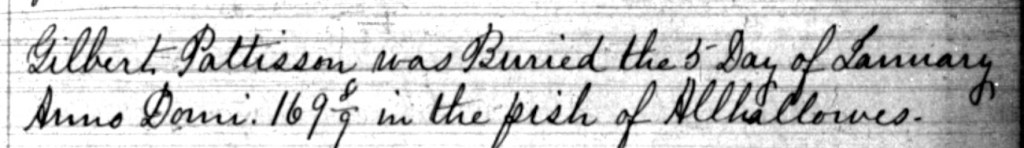 Gilbert Pattisson was Buried the 5 Day of January
Anno Domi. 169 8/9 in the pish of Allhallowes.